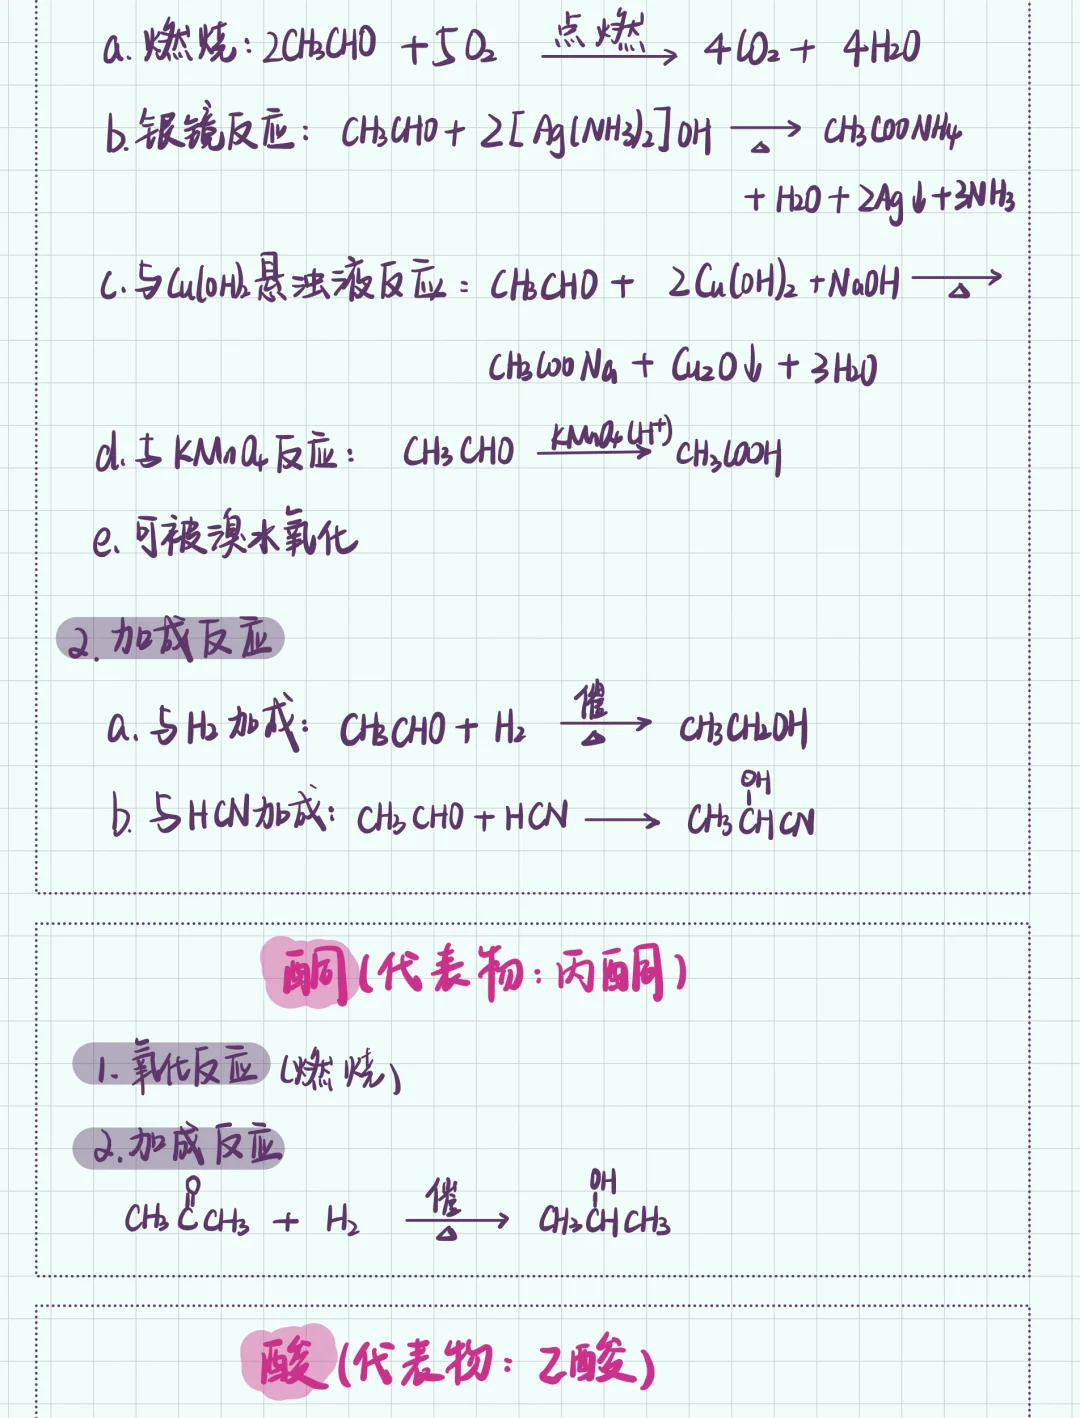 a. 燃烧: 2CH3CHO + 5O2 点燃→ 4CO2 + 4H2O
b. 银镜反应: CH3CHO + 2[Ag(NH3)2]OH →△ CH3COONH4
+ H2O + 2Ag↓ + 3NH3
c. 与Cu(OH)2悬浊液反应: CH3CHO + 2Cu(OH)2 + NaOH →△
CH3COONa + Cu2O↓ + 3H2O
d. 与KMnO4反应: CH3CHO KMnO4(H+)→ CH3COOH
e. 可被溴水氧化
2. 加成反应
a. 与H2加成: CH3CHO + H2 催→△ CH3CH2OH
OH
b. 与HCN加成: CH3CHO + HCN → CH3CHCN
酮(代表物: 丙酮)
1. 氧化反应 (燃烧)
2. 加成反应
O OH
CH3CCH3 + H2 催→△ CH3CHCH3
酸(代表物: 乙酸)